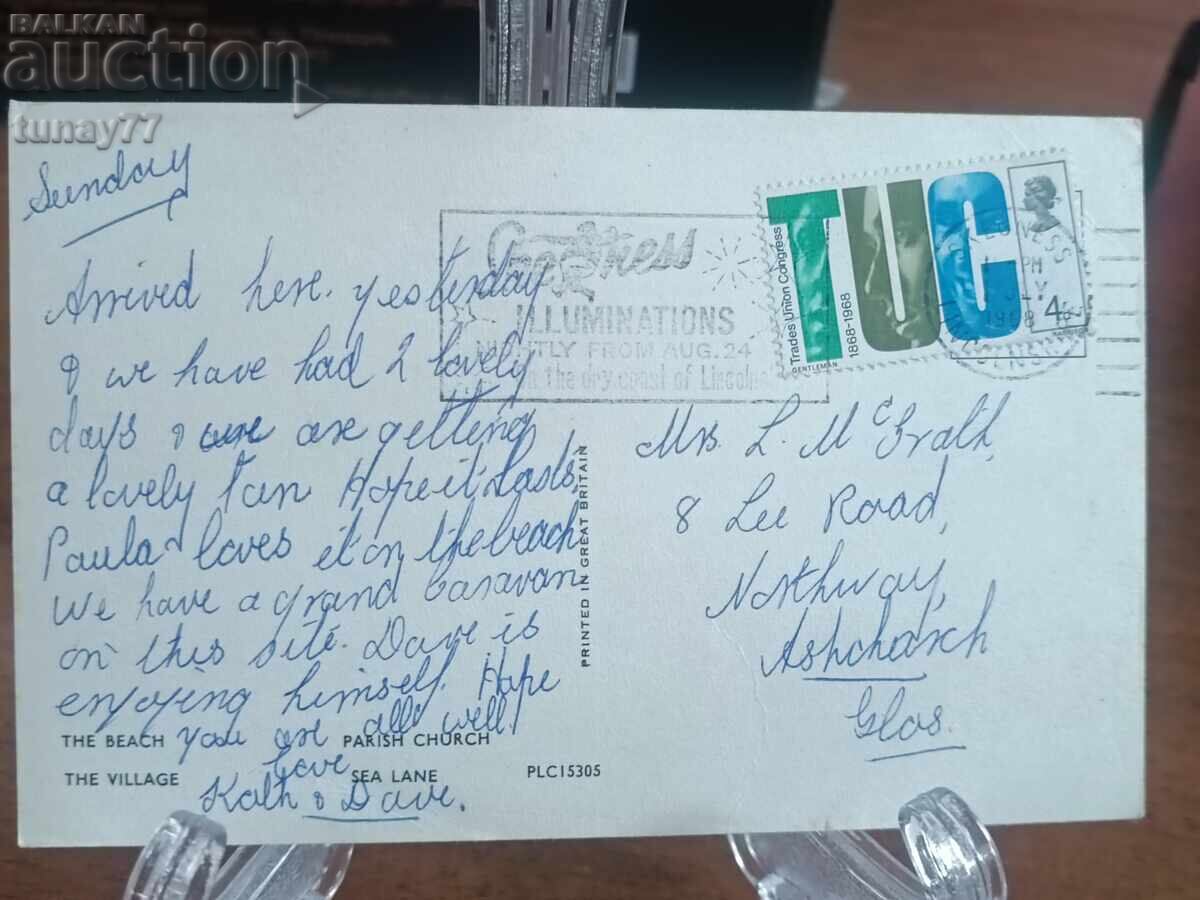 BALKAN
auction
tunay77
Sunday
Arrived here yesterday
& we have had 2 lovely
days & are getting
a lovely tan Hope it lasts.
Paula loves it on the beach
we have a grand Caravan
on this site. Dave is
enjoying himself. Hope
you are all well.
love
Kath & Dave.
THE BEACH
PARISH CHURCH
THE VILLAGE
SEA LANE
PLC15305
PRINTED IN GREAT BRITAIN
ILLUMINATIONS
NIGHTLY FROM AUG. 24
on the dry coast of
TUC
Trades Union Congress
1868-1968
GENTLEMAN
4d
PM
Mrs. L. McGrath,
8 Lee Road,
Northway,
Ashchurch
Glos.